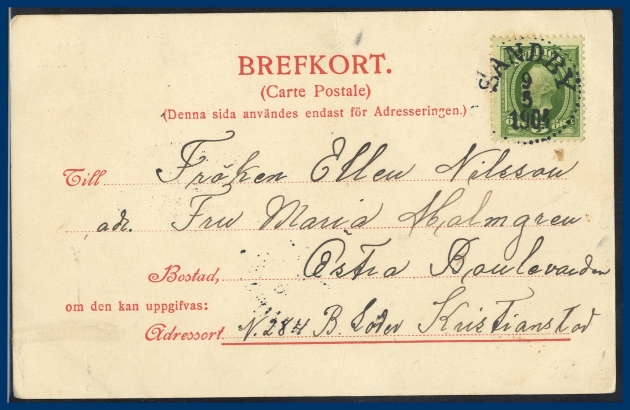 BREFKORT.
(Carte Postale)
(Denna sida användes endast för Adresseringen.)
SANDBY
9
5
1901
Till Fröken Ellen Nilsson
adr. Fru Maria Malmgren
Bostad, Östra Boulevarden
om den kan uppgifvas:
Adressort N. 284 B. Söder Kristianstad